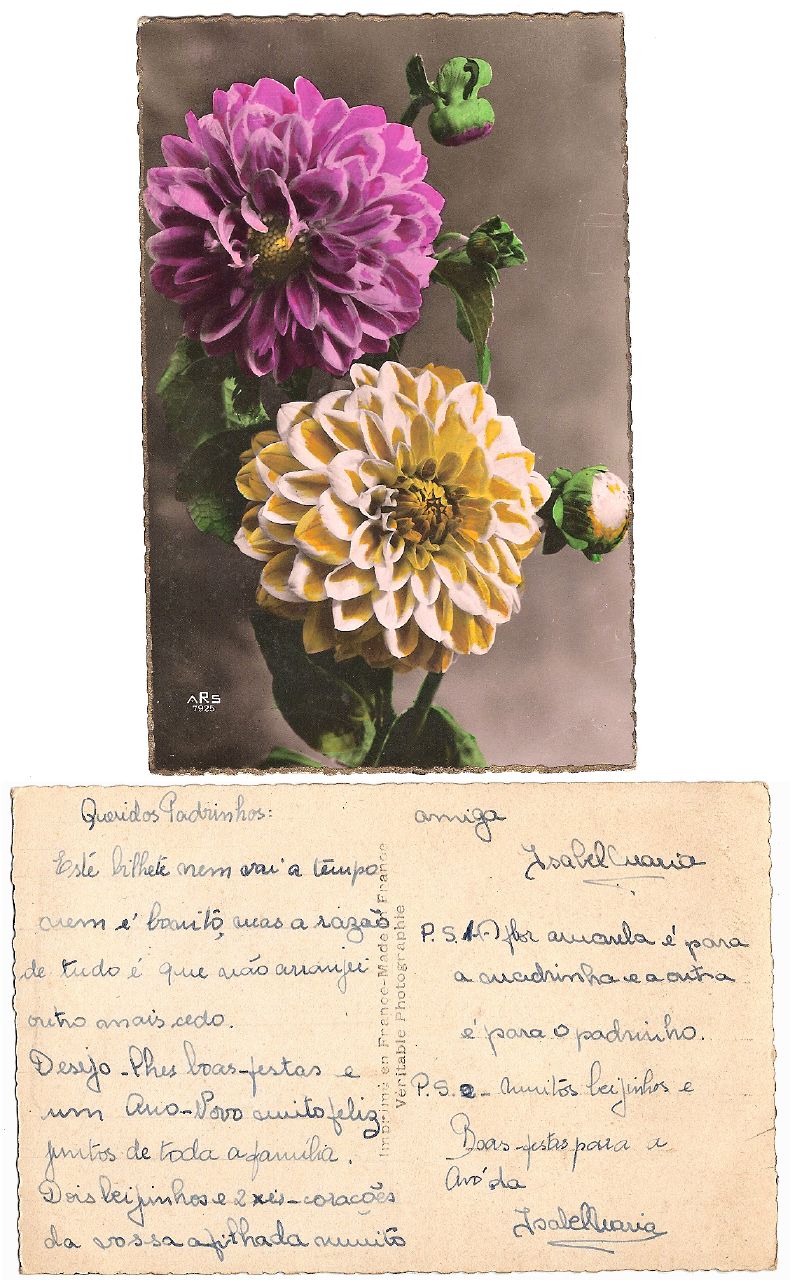 ARS
7925
Queridos Padrinhos:
Este bilhete nem vai a tempo
nem é bonito, mas a razão
de tudo é que não arranjei
outro mais cedo.
Desejo-lhes boas-festas e
um Ano-Novo muito feliz
juntos de toda a família.
Dois beijinhos e 2 xis-corações
da vossa afilhada muito
Imprimé en France-Made in France
Véritable Photographie
amiga
Isabel Maria
P.S.1-A flor amarela é para
a madrinha e a outra
é para o padrinho.
P.S.2- Muitos beijinhos e
Boas-festas para a
Avó da
Isabel Maria